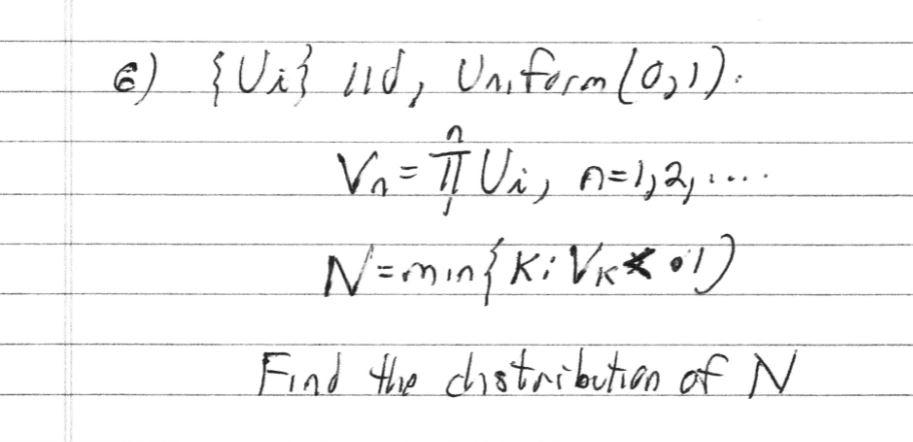 6) {Ui} iid, Uniform(0,1).
Vn = n∏1 Ui, n=1,2,....
N = min{K: VK < .1)
Find the distribution of N